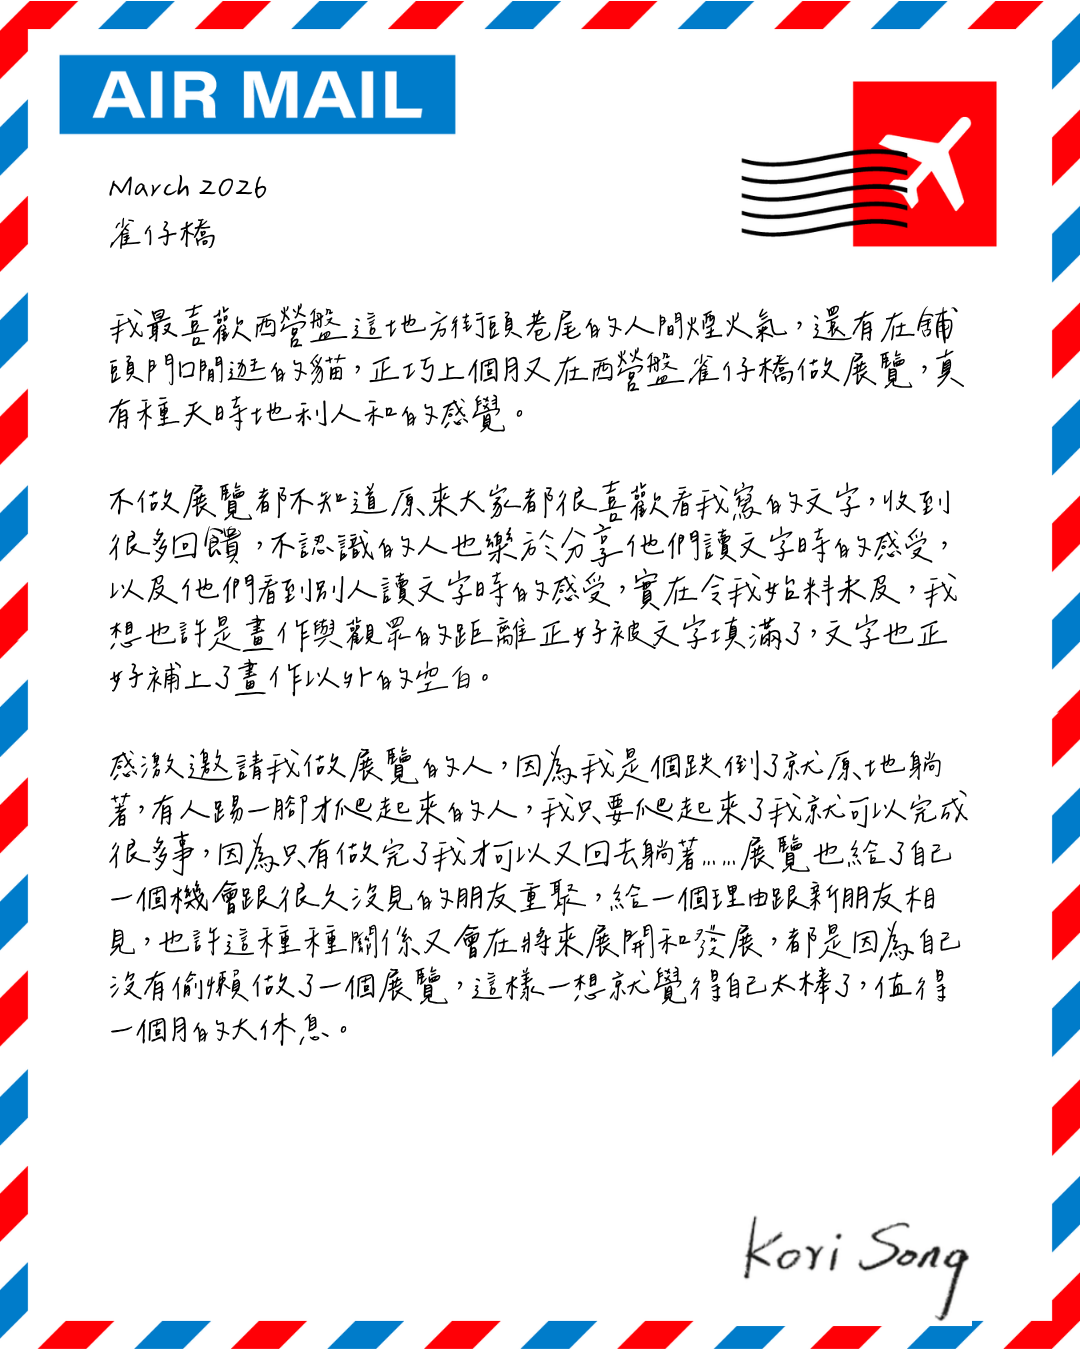 AIR MAIL
March 2026
雀仔橋
我最喜歡西營盤這地方街頭巷尾的人間煙火氣，還有在舖
頭門口閒逛的貓，正巧上個月又在西營盤雀仔橋做展覽，真
有種天時地利人和的感覺。
不做展覽都不知道原來大家都很喜歡看我寫的文字，收到
很多回饋，不認識的人也樂於分享他們讀文字時的感受，
以及他們看到別人讀文字時的感受，實在令我始料未及，我
想也許是畫作與觀眾的距離正好被文字填滿了，文字也正
好補上了畫作以外的空白。
感激邀請我做展覽的人，因為我是個跌倒了就原地躺
著，有人踢一腳才爬起來的人，我只要爬起來了我就可以完成
很多事，因為只有做完了我才可以又回去躺著……展覽也給了自己
一個機會跟很久沒見的朋友重聚，給一個理由跟新朋友相
見，也許這種種關係又會在將來展開和發展，都是因為自己
沒有偷懶做了一個展覽，這樣一想就覺得自己太棒了，值得
一個月的大休息。
Kori Song